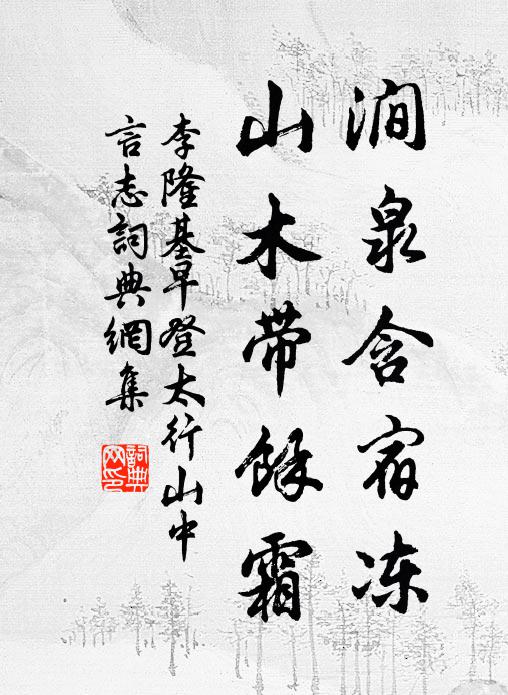 澗泉含宿冻
山木帶餘霜
李隆基早登太行山中
言志詞典網集
詞典網印